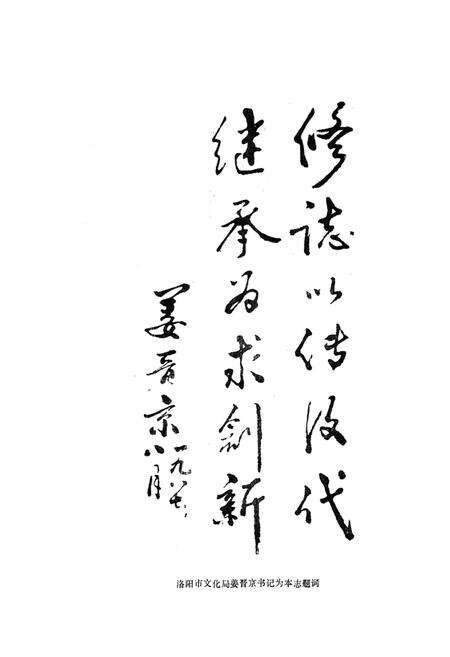 修誌以传后代
继承为求創新
姜晋京
一九八七
八月
洛阳市文化局姜晋京书记为本志题词